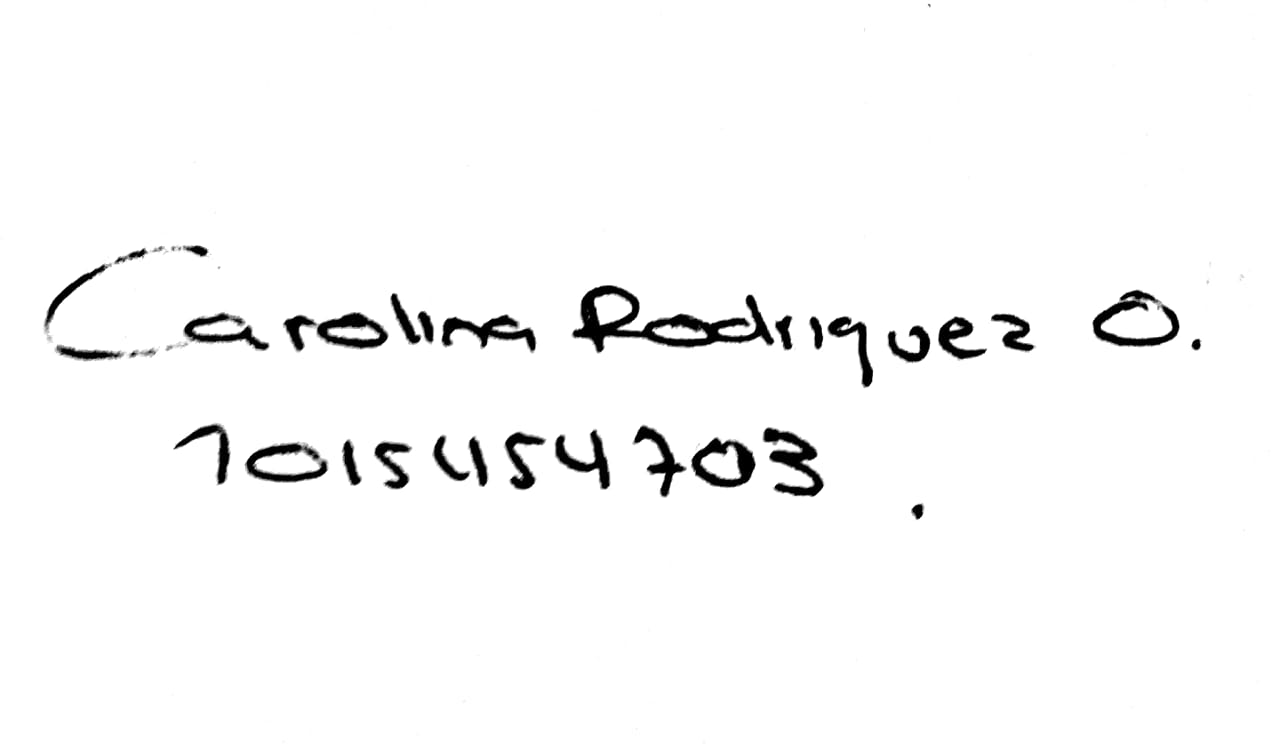 Carolina Rodriguez O.
1015454703.